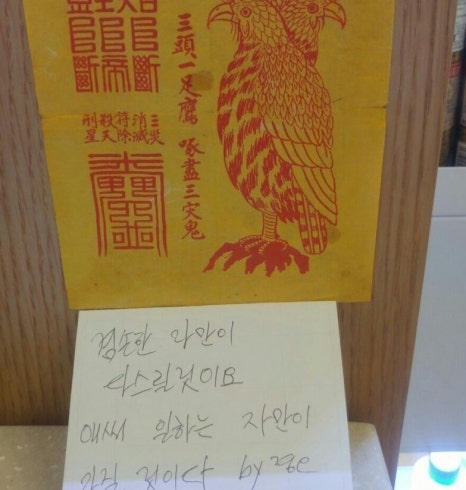 三頭一足鷹 啄盡三灾鬼
三災
消滅
符除
殺天
刑星
겸손한 자만이
다스릴것이요
애써 일하는 자만이
가질 것이다 by